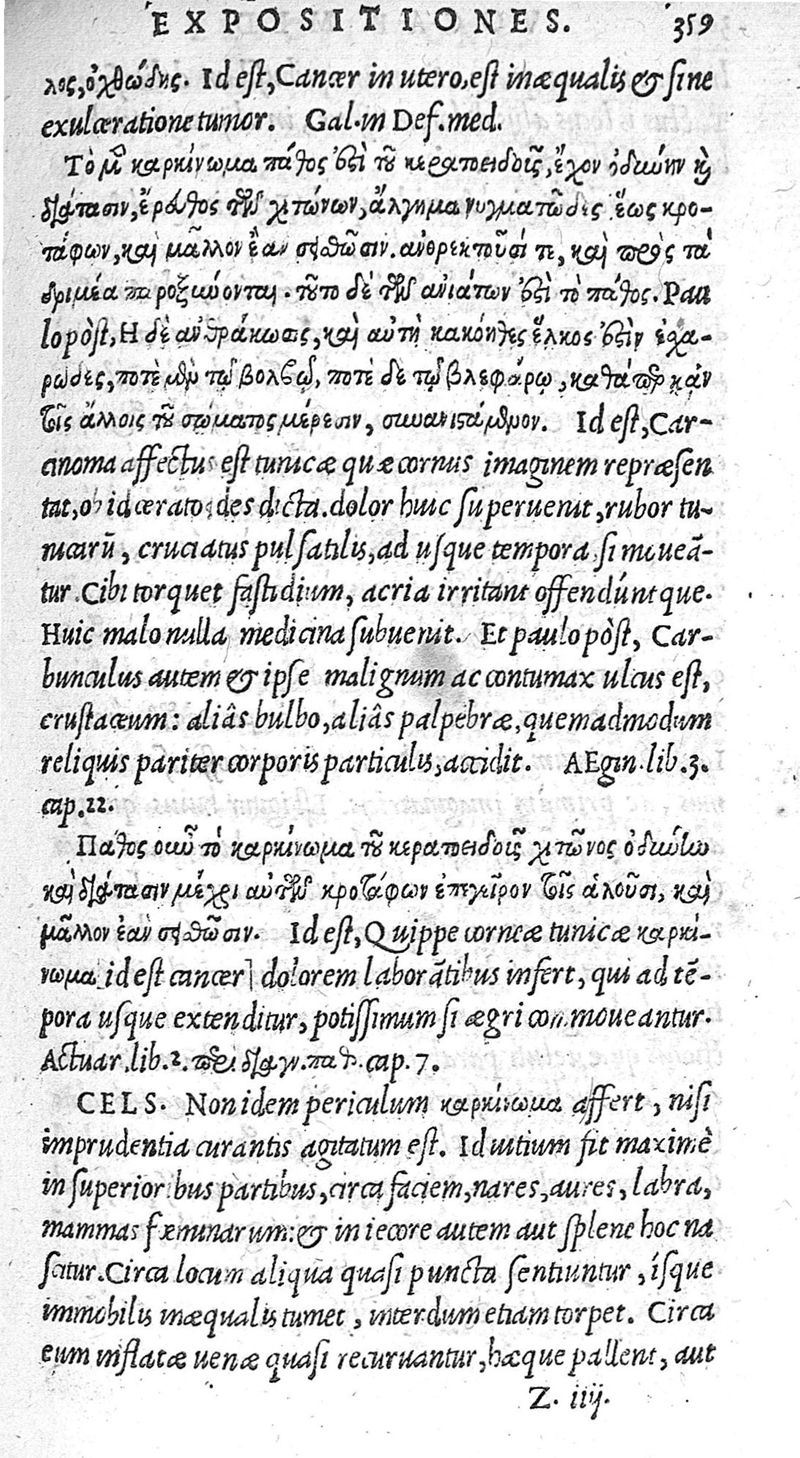 EXPOSITIONES. 359
λος, ὀχθώδης. Id est, Cancer in utero, est inæqualis & sine
exulceratione tumor. Gal. in Def. med.
Τὸ μὲν καρκίνωμα πάθος ἐστὶ τοῦ κερατοειδοῦς, ἔχον ὀδύνην καὶ
διάτασιν, ἔρευθος τῶν χιτώνων, ἄλγημα νυγματῶδες ἕως κρο-
τάφων, καὶ μᾶλλον ἐὰν κινηθῶσιν. ἀνορεκτοῦσί τε, καὶ πρὸς τὰ
δριμέα παροξύνονται. τοῦτο δὲ τῶν ἀνιάτων ἐστὶ τὸ πάθος. Pau
lo pòst, Η δὲ ἀνθράκωσις, καὶ αὐτὴ κακόηθες ἕλκος ἐστὶν ἐσχα-
ρῶδες, ποτὲ μὲν τῷ βολβῷ, ποτὲ δὲ τῷ βλεφάρῳ, καθάπερ κἀν
τοῖς ἄλλοις τοῦ σώματος μέρεσιν, συνανιστάμενον. Id est, Car-
cinoma affectus est tunicæ quæ cornus imaginem repræsen
tat, ob id ceratoides dicta. dolor huic superuenit, rubor tu-
nicarū, cruciatus pulsatilis, ad usque tempora si moueā-
tur. Cibi torquet fastidium, acria irritant offendúntque.
Huic malo nulla medicina subuenit. Et paulo pòst, Car-
bunculus autem & ipse malignum ac contumax ulcus est,
crustaceum: aliâs bulbo, aliâs palpebræ, quemadmodum
reliquis pariter corporis particulis, accidit. AEgin. lib. 3.
cap. 22.
Παθος οὖν τὸ καρκίνωμα τοῦ κερατοειδοῦς χιτῶνος ὀδύνην
καὶ διάτασιν μέχρι αὐτῶν κροτάφων ἐπεγεῖρον τοῖς ἁλοῦσι, καὶ
μᾶλλον ἐὰν κινηθῶσιν. Id est, Quippe corneæ tunicæ καρκί-
νωμα [id est cancer] dolorem laborātibus infert, qui ad tē-
pora usque extenditur, potissimum si ægri commoueantur.
Actuar. lib. 2. περὶ διαγν. παθ. cap. 7.
CELS. Non idem periculum καρκίνωμα affert, nisi
imprudentia curantis agitatum est. Id uitium fit maximè
in superioribus partibus, circa faciem, nares, aures, labra,
mammas fœminarum: & in iecore autem aut splene hoc na
scitur. Circa locum aliqua quasi puncta sentiuntur, ísque
immobilis inæqualis tumet, interdum etiam torpet. Circa
eum inflatæ uenæ quasi recuruantur, hæque pallent, aut
Z. iiij.